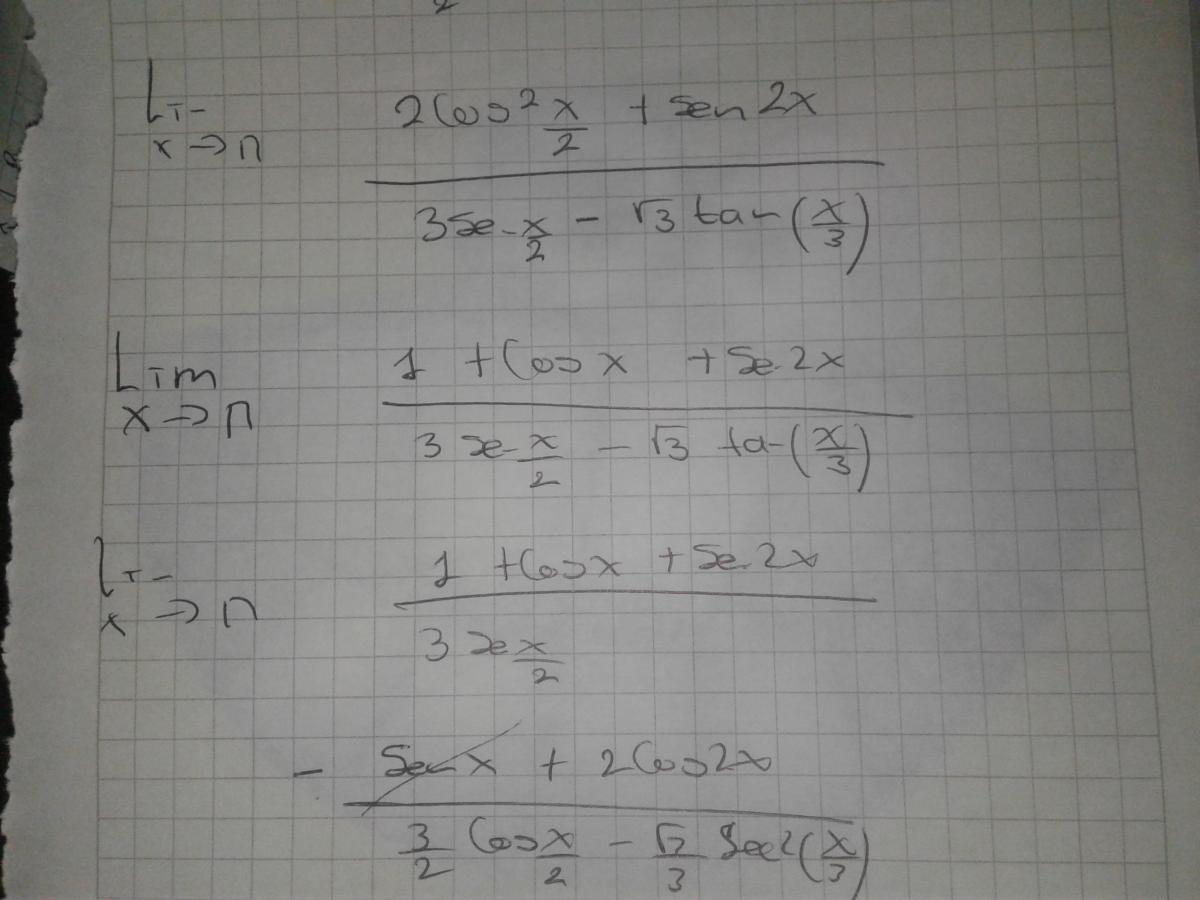 Lim 2Cos² x/2 + Sen 2x
x→π 3Sen x/2 - √3 tan (x/3)
Lim 1 + Cos x + Sen 2x
x→π 3 Sen x/2 - √3 tan (x/3)
Lim 1 + Cos x + Sen 2x
x→π 3 Sen x/2
- Sen x + 2Cos2x
3/2 Cos x/2 - √3/3 Sec² (x/3)